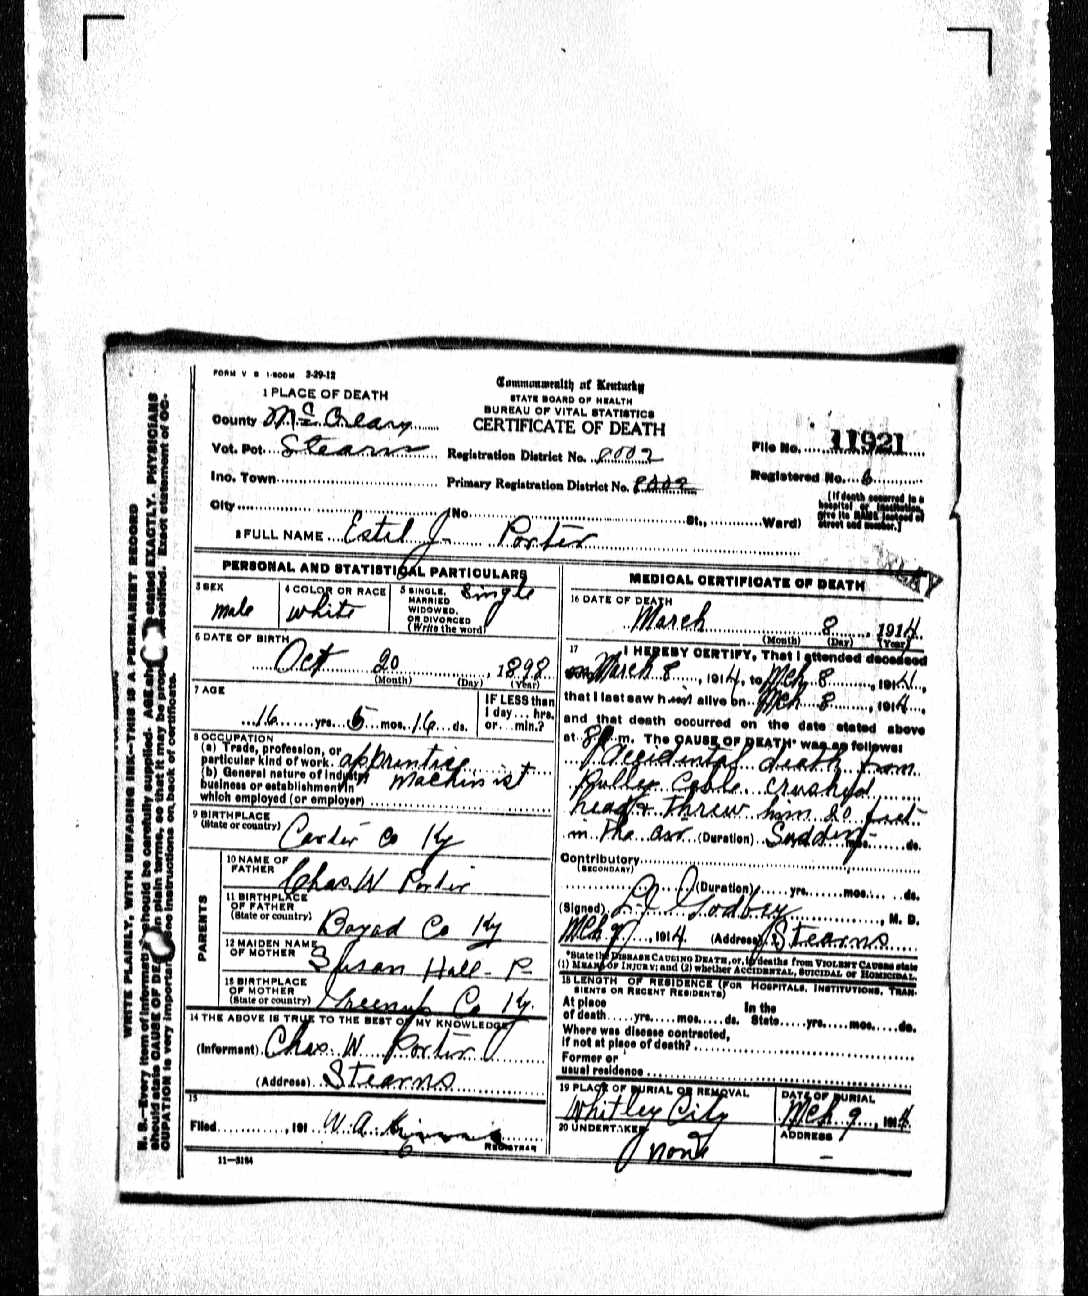 FORM V S 1-500M 3-29-12
1 PLACE OF DEATH
Commonwealth of Kentucky
STATE BOARD OF HEALTH
BUREAU OF VITAL STATISTICS
CERTIFICATE OF DEATH
County McCreary
Vot. Pct. Stearns
Registration District No. 8002
File No. 11921
Inc. Town
Primary Registration District No. 8002
Registered No. 6
City
(No.
St., Ward)
(If death occurred in a hospital or institution, give its NAME instead of street and number.)
2 FULL NAME Estil J. Porter
PERSONAL AND STATISTICAL PARTICULARS
3 SEX
male
4 COLOR OR RACE
white
5 SINGLE, MARRIED WIDOWED, OR DIVORCED (Write the word)
Single
6 DATE OF BIRTH
Oct 20, 1898
(Month) (Day) (Year)
7 AGE
16 yrs. 5 mos. 16 ds.
IF LESS than 1 day... hrs. or... min.?
8 OCCUPATION
(a) Trade, profession, or
particular kind of work. apprentice
(b) General nature of industry machinist
business or establishment in
which employed (or employer)
9 BIRTHPLACE
(State or country)
Carter Co Ky
PARENTS
10 NAME OF FATHER
Chas. W Porter
11 BIRTHPLACE OF FATHER
(State or country)
Boyad Co Ky
12 MAIDEN NAME OF MOTHER
Susan Hall - P
13 BIRTHPLACE OF MOTHER
(State or country)
Greenup Co Ky.
14 THE ABOVE IS TRUE TO THE BEST OF MY KNOWLEDGE
(Informant) Chas. W Porter
(Address) Stearns
15
Filed , 191 W. A.
REGISTRAR
11-3184
MEDICAL CERTIFICATE OF DEATH
16 DATE OF DEATH
March 8, 1914
(Month) (Day) (Year)
17 I HEREBY CERTIFY, That I attended deceased
March 8, 1914, to Mch 8, 1914,
that I last saw him alive on Mch 8, 1914,
and that death occurred on the date stated above
at 8 P. m. The CAUSE OF DEATH* was as follows:
Accidental death from
Pulley Cable crushed
head & threw him 20 feet
in the air (Duration) Sudden mos. ds.
Contributory
(SECONDARY)
(Duration) yrs. mos. ds.
(Signed) Godbey, M. D.
Mch 9, 1914 (Address) Stearns
*State the DISEASE CAUSING DEATH, or, in deaths from VIOLENT CAUSES state
(1) MEANS OF INJURY; and (2) whether ACCIDENTAL, SUICIDAL or HOMICIDAL.
18 LENGTH OF RESIDENCE (FOR HOSPITALS, INSTITUTIONS, TRANSIENTS OR RECENT RESIDENTS)
At place of death yrs. mos. ds. In the State yrs. mos. ds.
Where was disease contracted,
If not at place of death?
Former or
usual residence
19 PLACE OF BURIAL OR REMOVAL
Whitley City
DATE OF BURIAL
Mch 9, 1914
20 UNDERTAKER
none
ADDRESS
–
WRITE PLAINLY, WITH UNFADING INK—THIS IS A PERMANENT RECORD
N. B.—Every item of information should be carefully supplied. AGE should be stated EXACTLY. PHYSICIANS
should state CAUSE OF DEATH in plain terms, so that it may be properly classified. Exact statement of OC-
CUPATION is very important. See instructions on back of certificate.